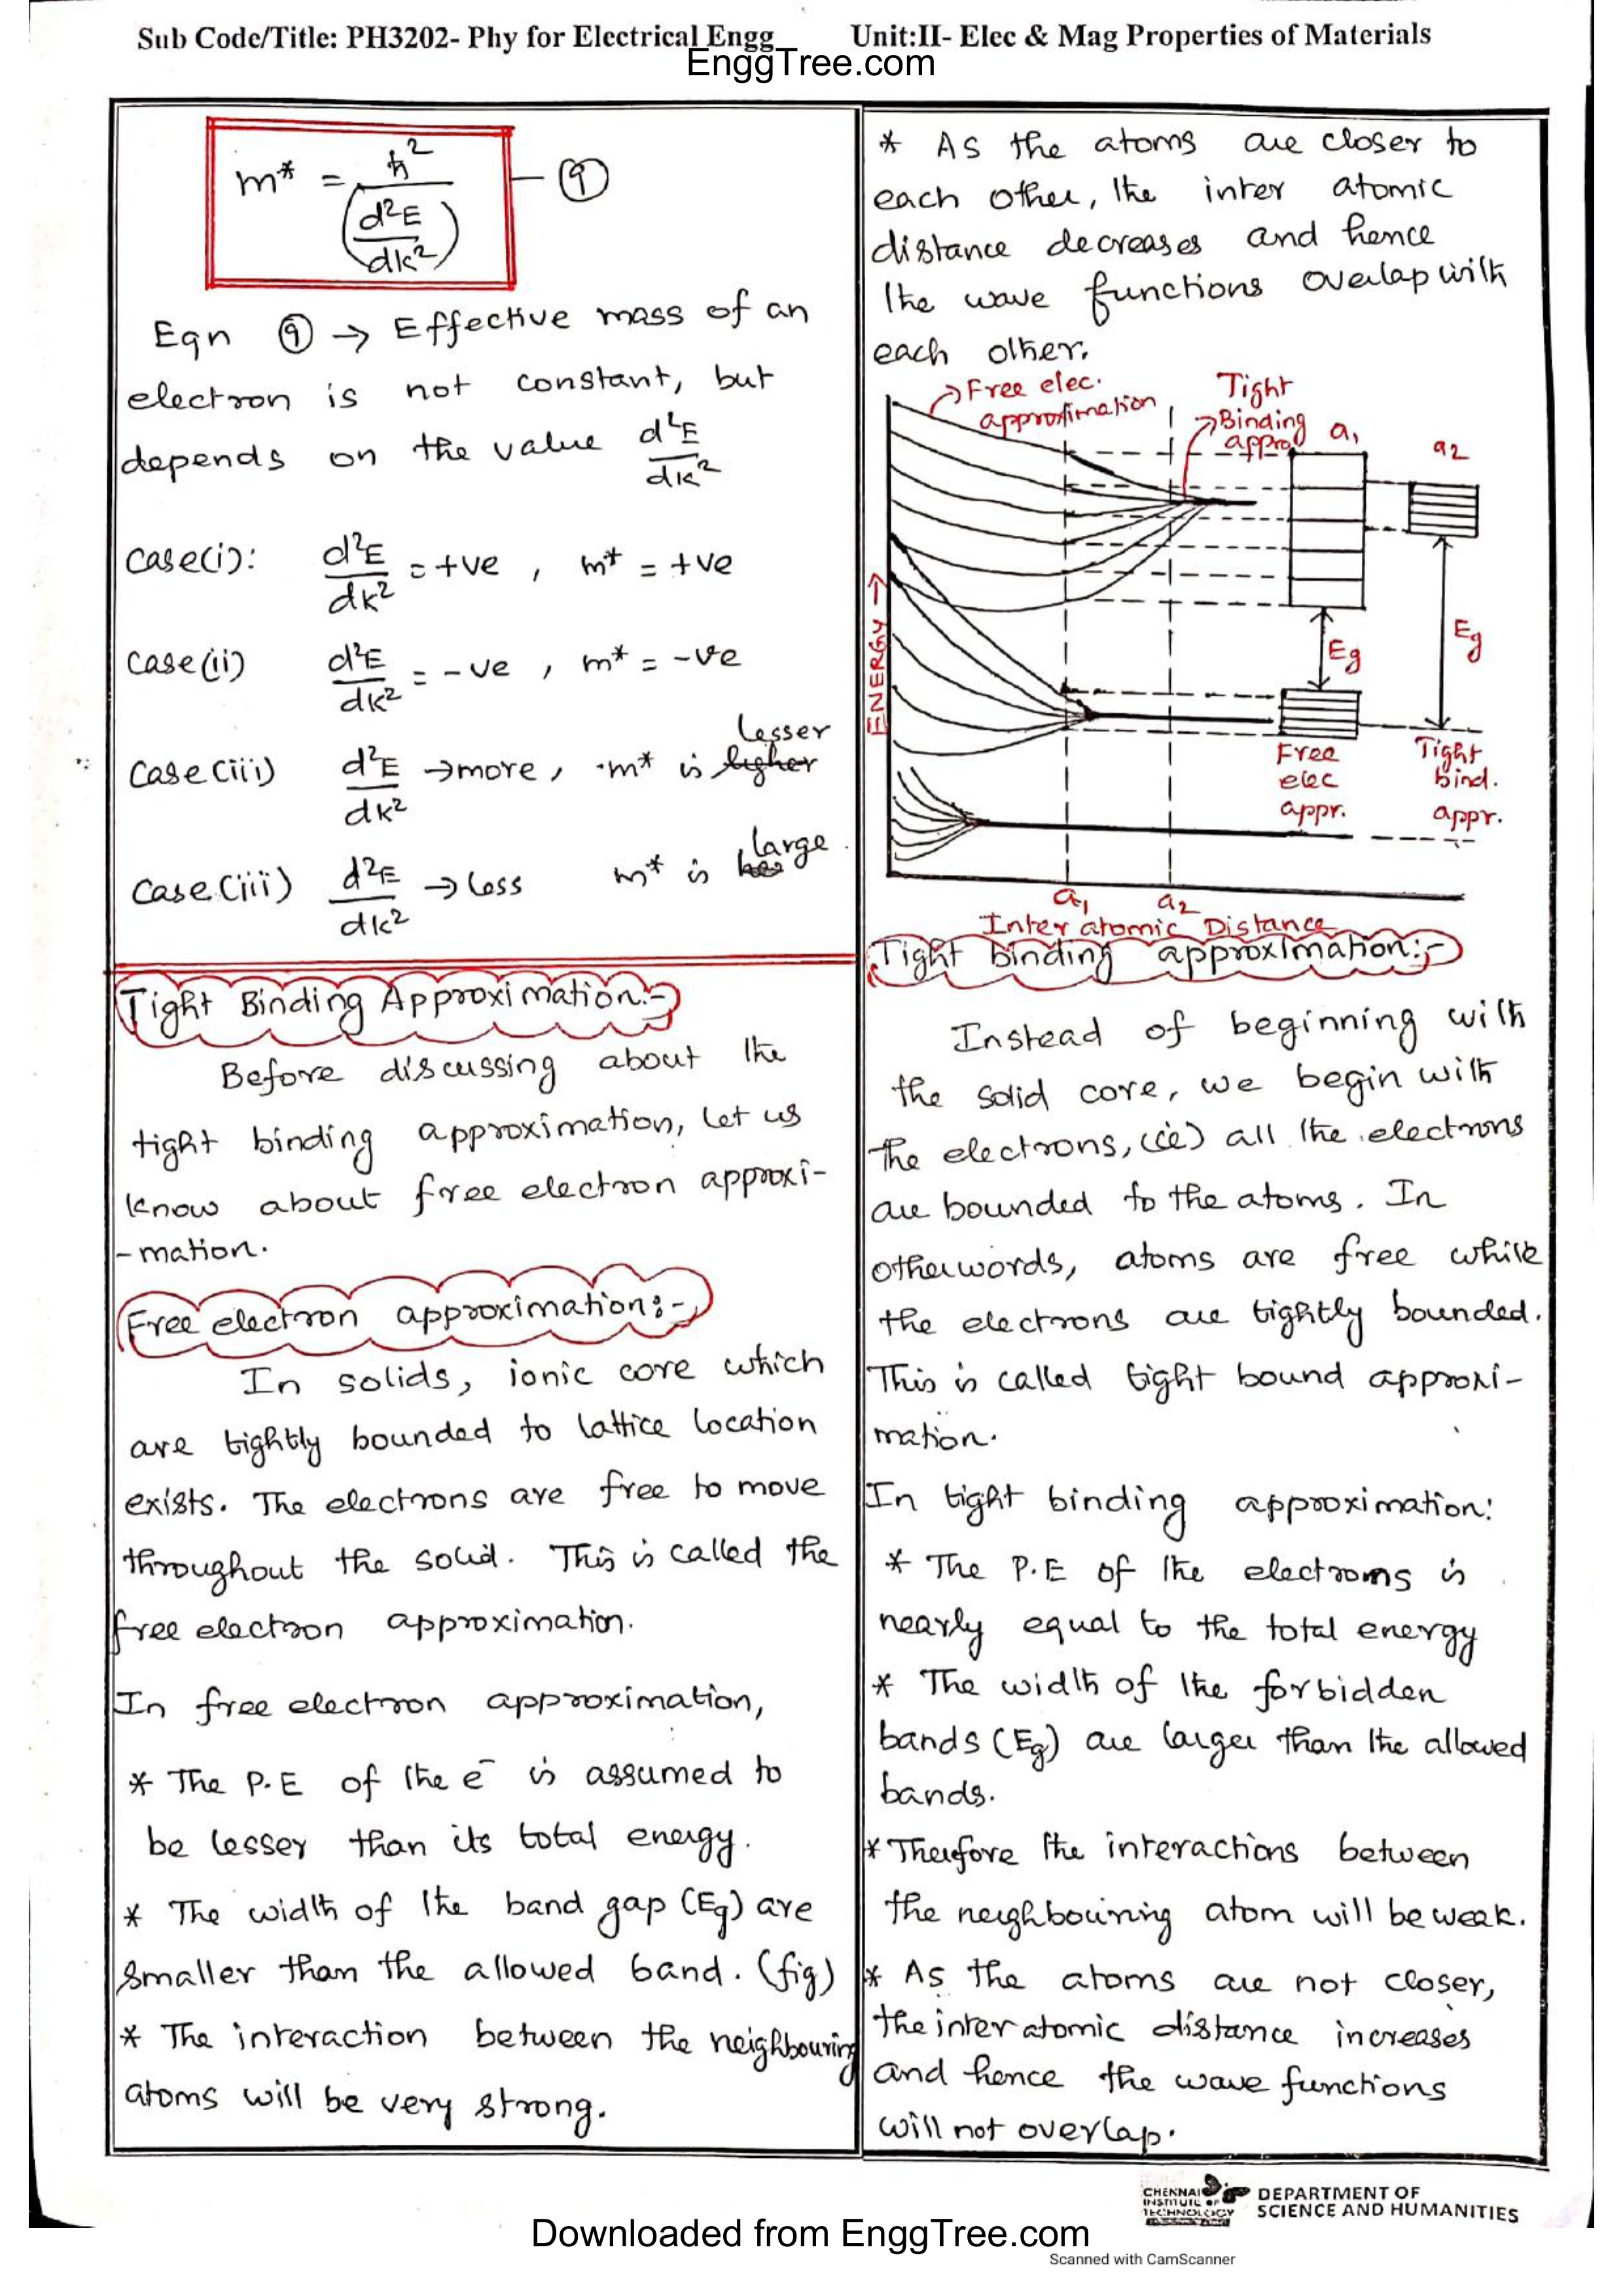 Sub Code/Title: PH3202- Phy for Electrical Engg Unit:II- Elec & Mag Properties of Materials
EnggTree.com
m* = ħ² / (d²E/dk²) — ⑨
Eqn ⑨ → Effective mass of an
electron is not constant, but
depends on the value d²E/dk²
Case(i): d²E/dk² = +ve , m* = +ve
Case(ii) d²E/dk² = -ve , m* = -ve
lesser
Case(iii) d²E/dk² → more, m* is higher
large
Case(iii) d²E/dk² → less m* is
Tight Binding Approximation:-
Before discussing about the
tight binding approximation, let us
know about free electron approxi-
-mation.
Free electron approximation:-
In solids, ionic core which
are tightly bounded to lattice location
exists. The electrons are free to move
throughout the solid. This is called the
free electron approximation.
In free electron approximation,
* The P.E of the e⁻ is assumed to
be lesser than its total energy.
* The width of the band gap (Eg) are
smaller than the allowed band. (fig)
* The interaction between the neighbouring
atoms will be very strong.
* As the atoms are closer to
each other, the inter atomic
distance decreases and hence
the wave functions overlap with
each other.
→ Free elec.
approximation
Tight
→ Binding
appro
a₁
a2
ENERGY →
Eg
Eg
Free
elec
appr.
Tight
bind.
appr.
a₁ a₂
Inter atomic Distance
Tight binding approximation:-
Instead of beginning with
the solid core, we begin with
the electrons, (ie) all the electrons
are bounded to the atoms. In
otherwords, atoms are free while
the electrons are tightly bounded.
This is called tight bound approxi-
mation.
In tight binding approximation:
* The P.E of the electroms is
nearly equal to the total energy
* The width of the forbidden
bands (Eg) are larger than the allowed
bands.
* Therefore the interactions between
the neighbouring atom will be weak.
* As the atoms are not closer,
the inter atomic distance increases
and hence the wave functions
will not overlap.
CHENNAI
INSTITUTE OF
TECHNOLOGY
DEPARTMENT OF
SCIENCE AND HUMANITIES
Downloaded from EnggTree.com
Scanned with CamScanner